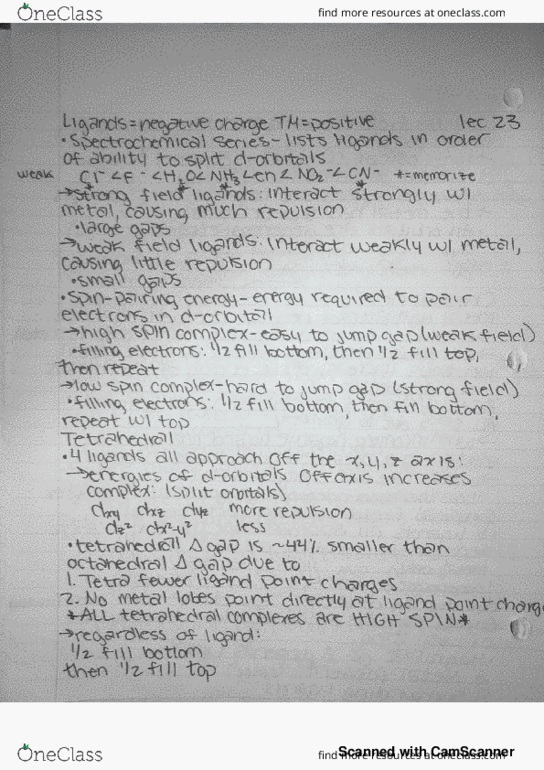 OneClass find more resources at oneclass.com
Ligands=negative charge TM=positive lec 23
• Spectrochemical series- lists ligands in order
of ability to split d-orbitals
weak Cl⁻<F⁻<H₂O<NH₃<en<NO₂⁻<CN⁻ *=memorize
→strong field ligands: interact strongly w/
metal, causing much repulsion
•large gaps
→weak field ligands: interact weakly w/ metal,
causing little repulsion
•small gaps
•Spin-pairing energy- energy required to pair
electrons in d-orbital
→high spin complex-easy to jump gap (weak field)
•filling electrons: 1/2 fill bottom, then 1/2 fill top,
then repeat
→low spin complex-hard to jump gap (strong field)
•filling electrons: 1/2 fill bottom, then fill bottom,
repeat w/ top
Tetrahedral
•4 ligands all approach off the x,y,z axis:
→energies of d-orbitals off axis increases
complex: (split orbitals)
dxy dxz dyz more repulsion
dz² dx²-y² less
•tetrahedral Δ gap is ~44% smaller than
octahedral Δ gap due to
1. Tetra fewer ligand point charges
2. No metal lobes point directly at ligand point charg
*ALL tetrahedral complexes are HIGH SPIN*
→regardless of ligand:
1/2 fill bottom
then 1/2 fill top
Scanned with CamScanner
OneClass find more resources at oneclass.com